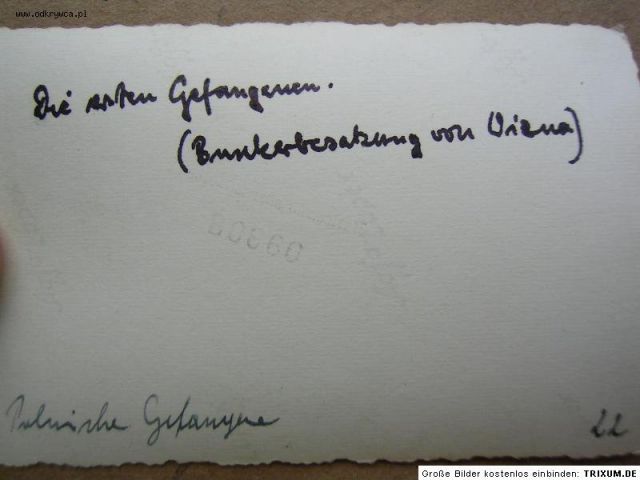 www.odkrywca.pl
Die ersten Gefangenen.
(Bunkerbesatzung von Vizna)
09303
Polnische Gefangene
22
Große Bilder kostenlos einbinden: TRIXUM.DE